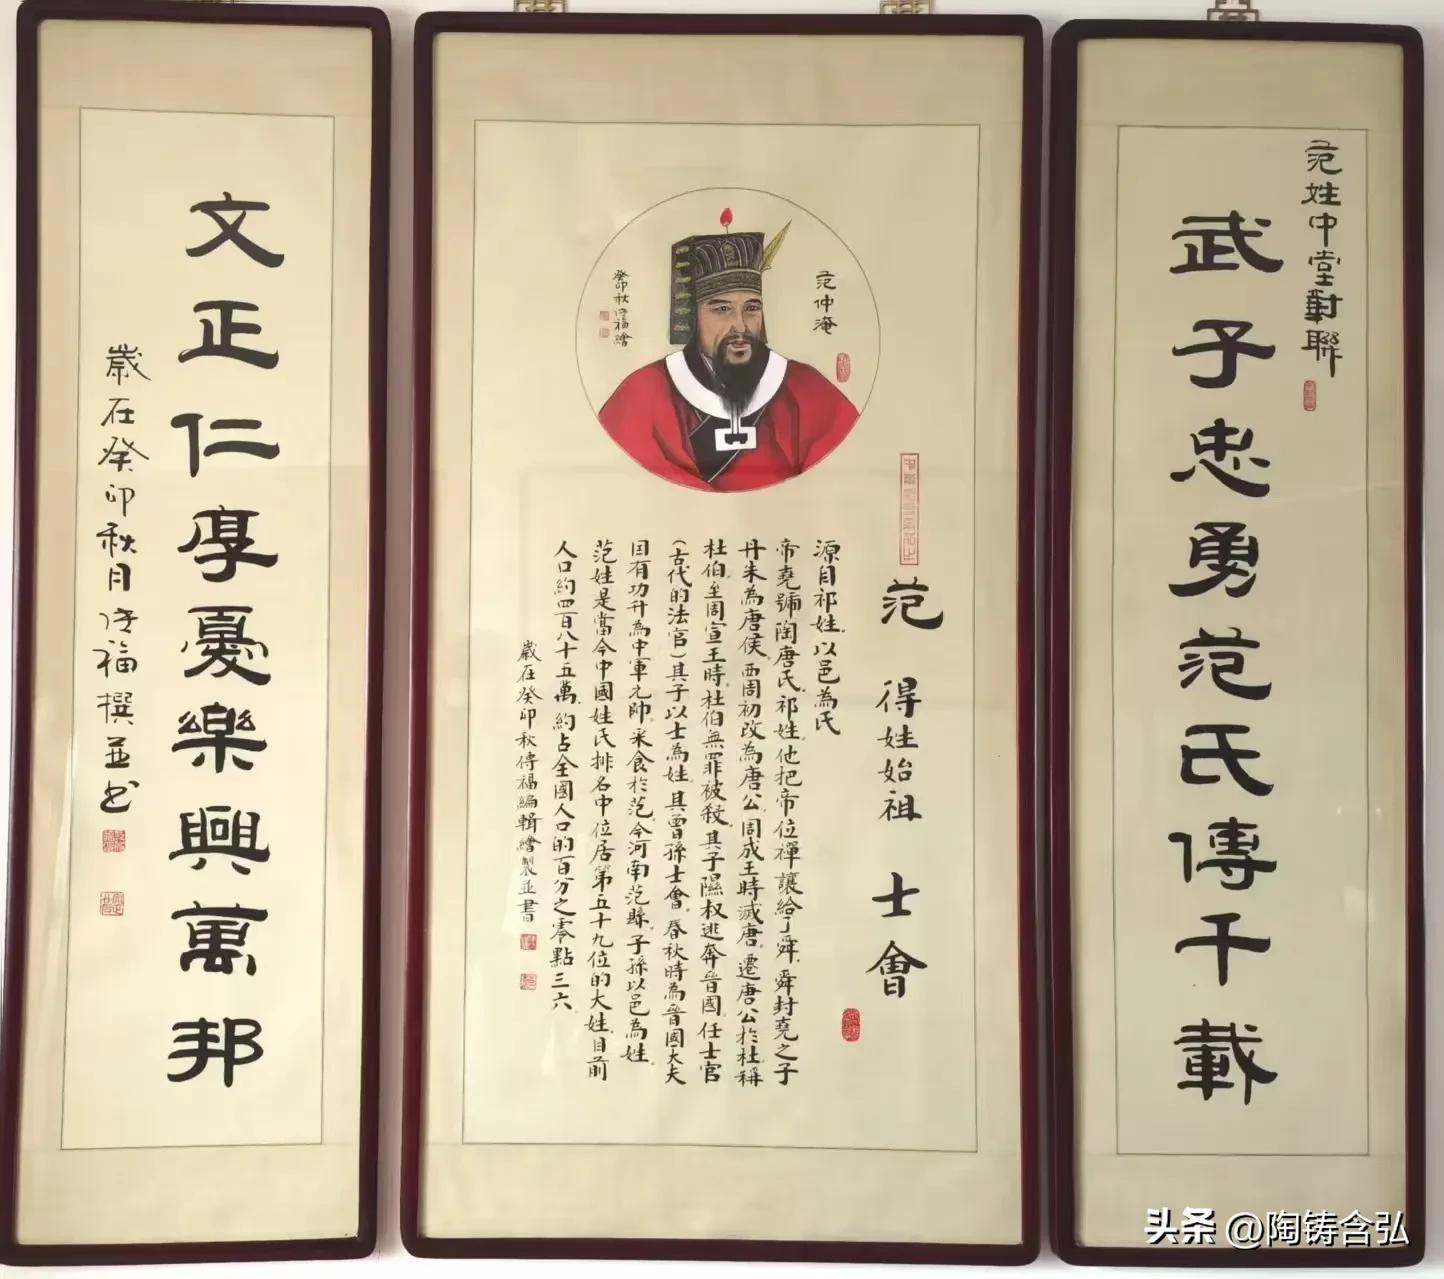 范姓中堂對聯
武子忠勇范氏傳千載
范仲淹
癸卯秋傳福繪
范 得姓始祖 士會
源自祁姓.以邑為氏
帝堯號陶唐氏.祁姓.他把帝位禪讓給了舜.舜封堯之子
丹朱為唐侯.西周初改為唐公.周成王時滅唐.遷唐公於杜.稱
杜伯.至周宣王時.杜伯無罪被殺.其子隰叔逃奔晉國.任士官
(古代的法官)其子以士為姓.其曾孫士會.春秋時為晉國大夫
因有功升為中軍元帥.采食於范.今河南范縣.子孫以邑為姓.
范姓是當今中國姓氏排名中位居第五十九位的大姓.目前
人口約四百八十五萬.約占全國人口的百分之零點三六.
歲在癸卯秋傳福編輯繪製並書
文正仁厚憂樂興萬邦
歲在癸卯秋月傳福撰並书
头条 @陶铸含弘